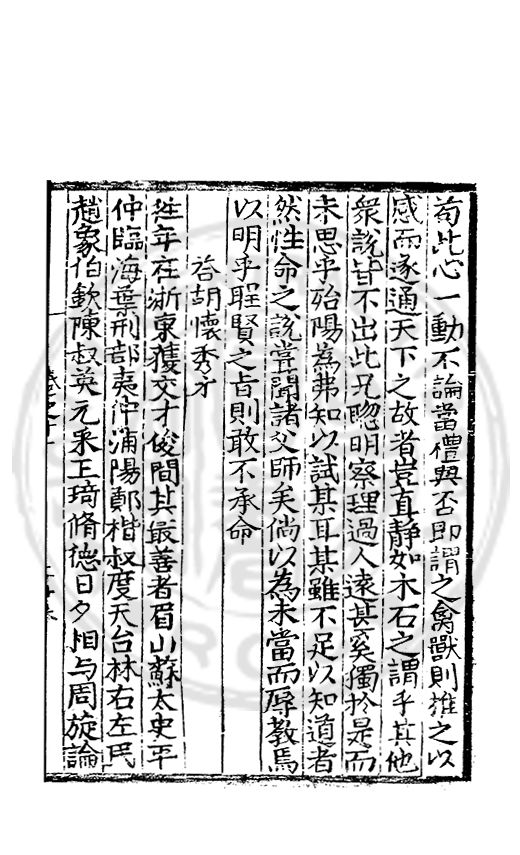 苟此心一動不論當禮與否即謂之禽獸則推之以
感而遂通天下之故者豈真靜如木石之謂乎其他
衆說皆不出此兄聦明察理過人遠甚奚獨於是而
未思乎殆陽為弗知以試某耳某雖不足以知道者
然性命之說嘗聞諸父師矣倘以為未當而辱教焉
以明乎聖賢之旨則敢不承命
荅胡懷秀才
往年在浙東獲交才俊間其最善者眉山蘇太史平
仲臨海葉刑部夷仲浦陽鄭楷叔度天台林右左民
趙象伯欽陳叔英元采王琦脩德日夕相与周旋論